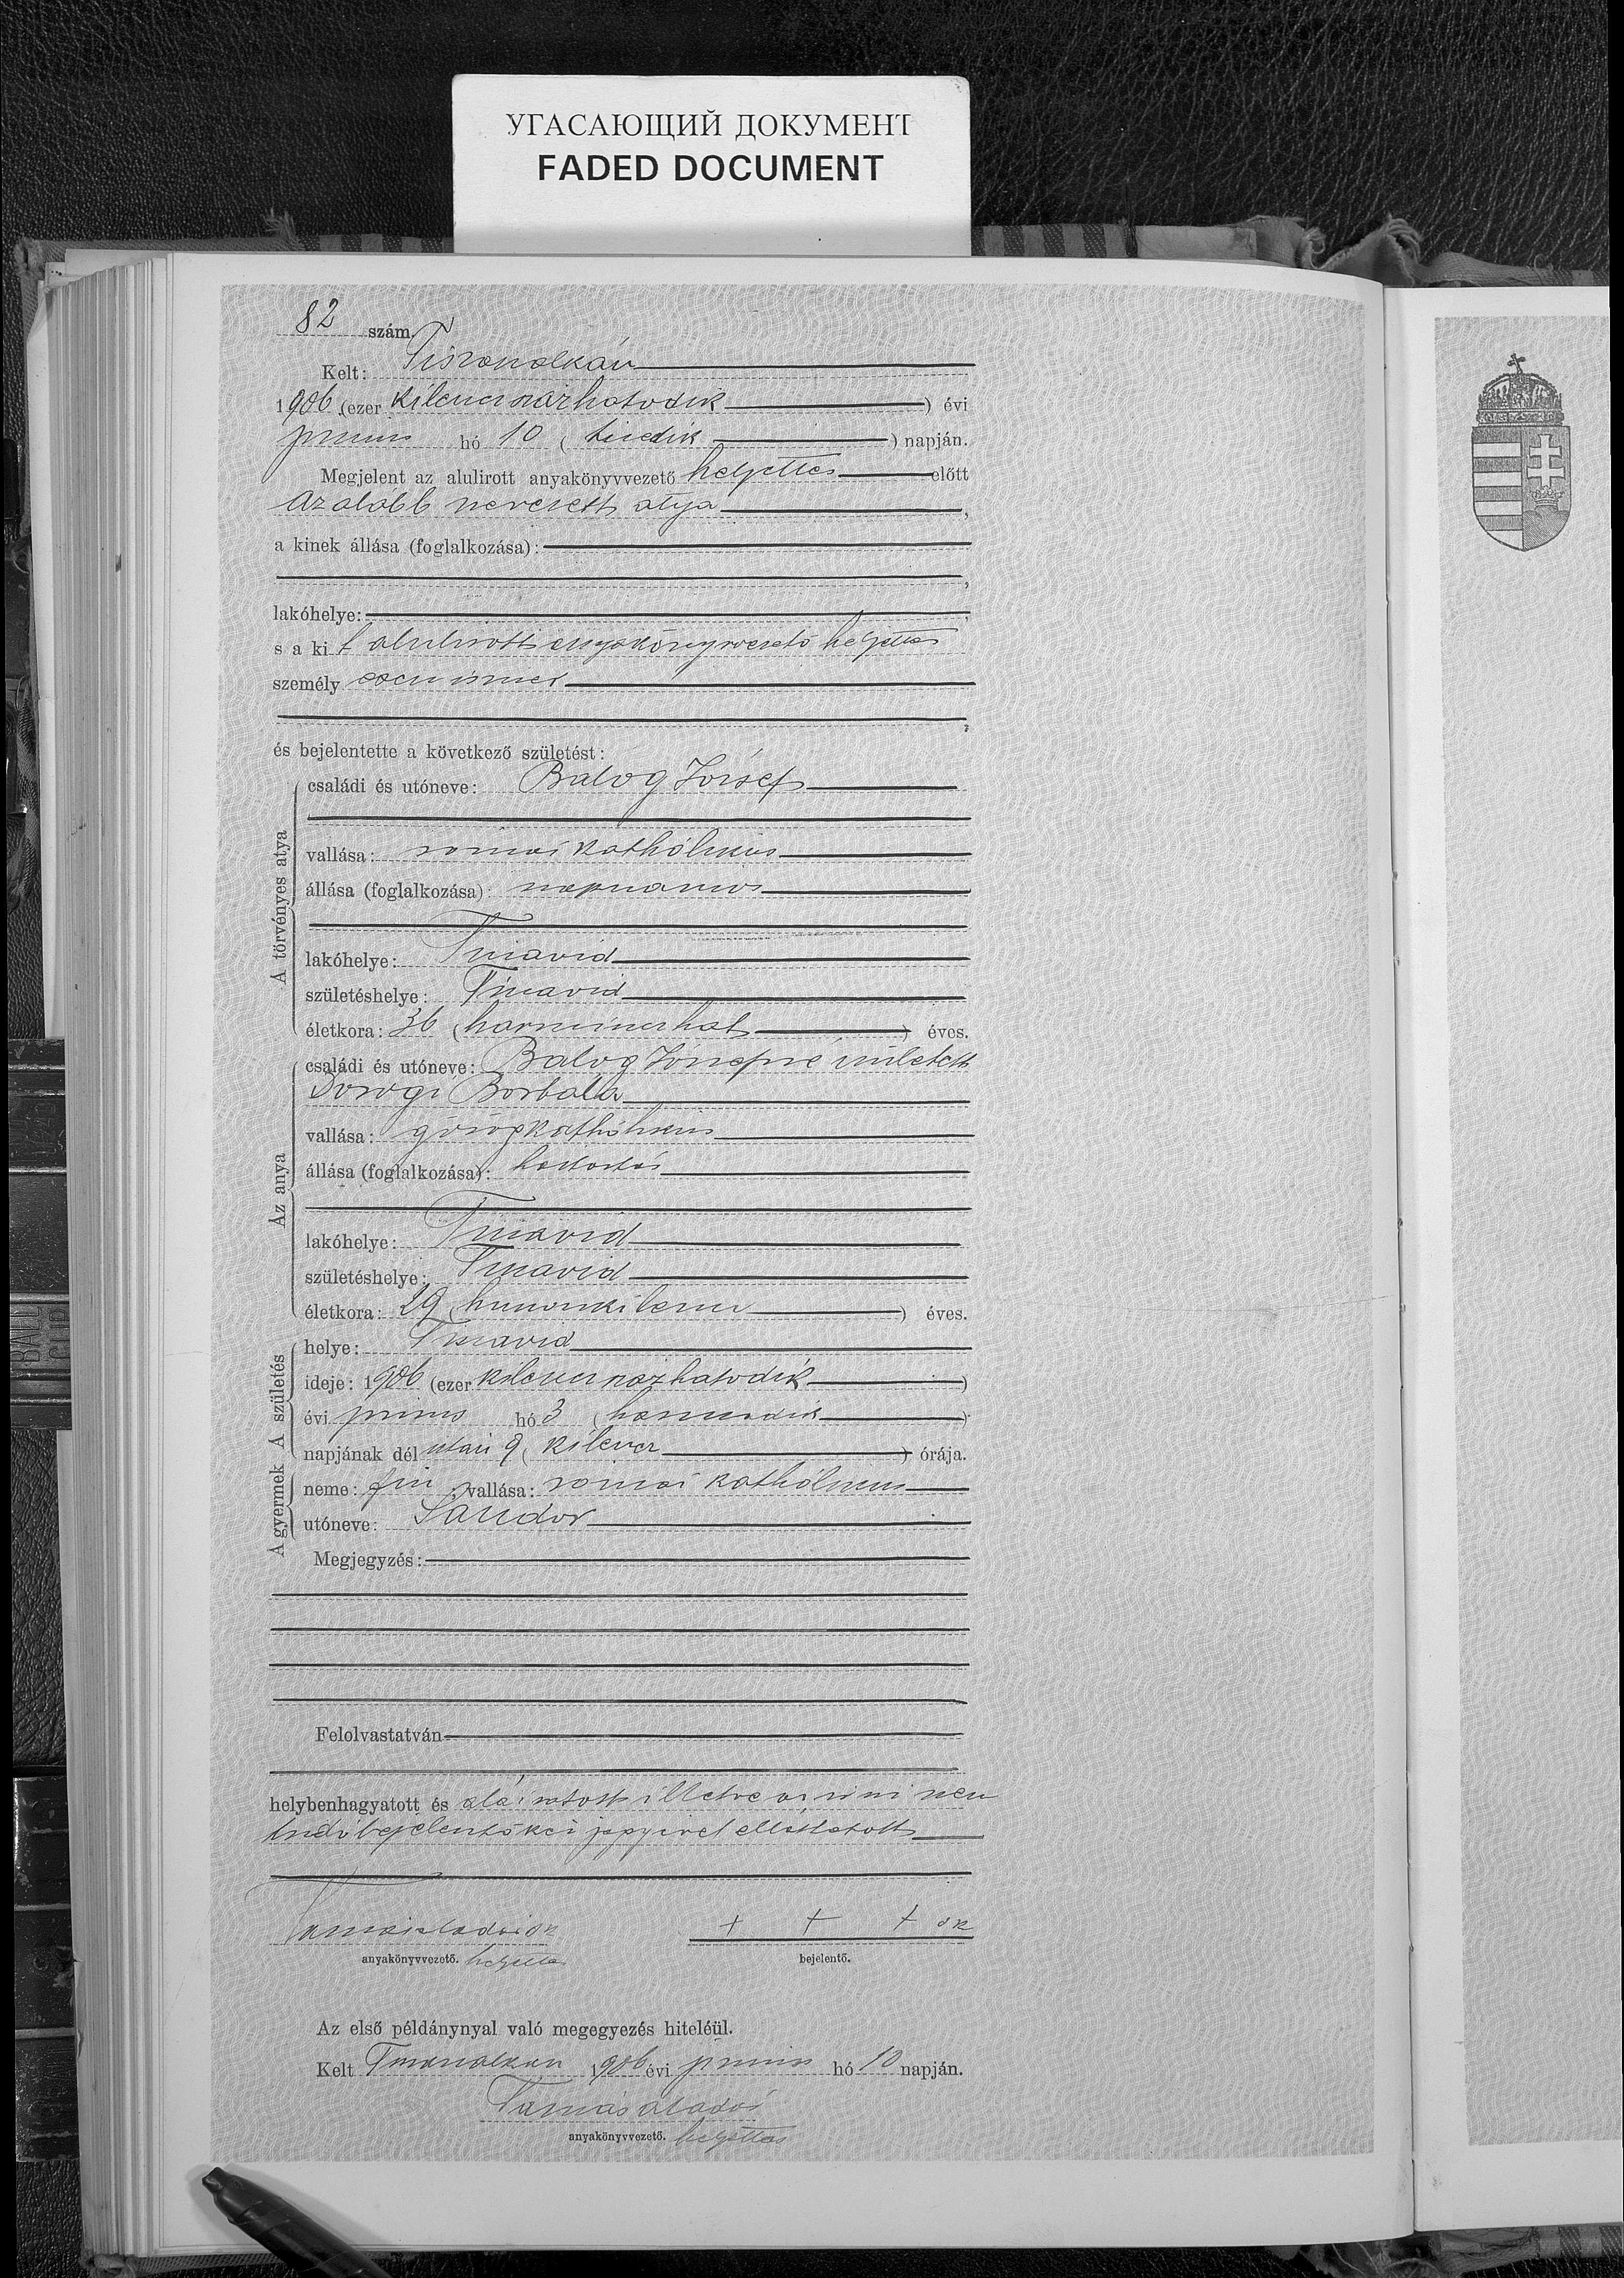 УГАСАЮЩИЙ ДОКУМЕНТ
FADED DOCUMENT
82 szám.
Kelt: Tiszanánán
1906 (ezer kilencszázhatodik) évi
junius hó 10 (tizedik) napján.
Megjelent az alulirott anyakönyvvezető helyettes előtt
az alább nevezett atya,
a kinek állása (foglalkozása):
lakóhelye:
s a kit alulirott anyakönyvvezető helyettes
személy esen ismer
és bejelentette a következő születést:
A törvényes atya
családi és utóneve: Balog József
vallása: római katholikus
állása (foglalkozása): napszámos
lakóhelye: Tiszavid
születéshelye: Tiszavid
életkora: 36 (harminczhat) éves.
Az anya
családi és utóneve: Balog Józsefné született
Dorogi Borbála
vallása: görögkatholikus
állása (foglalkozása): háztartás
lakóhelye: Tiszavid
születéshelye: Tiszavid
életkora: 29 (huszonkilencz) éves.
A gyermek A születés
helye: Tiszavid
ideje: 1906 (ezer kilenczszázhatodik)
évi junius hó 3 (harmadik)
napjának délután 9 (kilencz) órája.
neme: fiú vallása: római katholikus
utóneve: Sándor
Megjegyzés:
Felolvastatván
helybenhagyatott és aláiratott illetve az irni nem
tudó bejelentő kézjegyével elláttatott
Tamás Aladár sk
anyakönyvvezető. helyettes
+ + + sk
bejelentő.
Az első példánynyal való megegyezés hiteléül.
Kelt 1906 évi junius hó 10 napján.
Tamás Aladár
anyakönyvvezető. helyettes